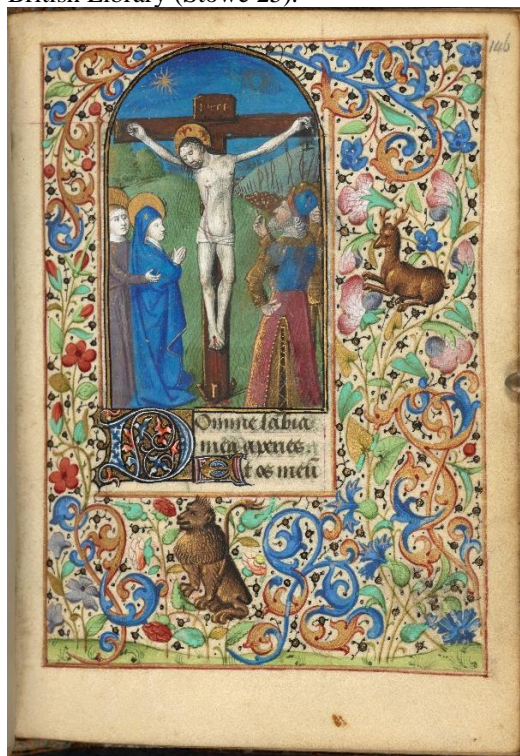 British Library (Stowe 25).
146
Domine labia
mea aperies
Et os meū